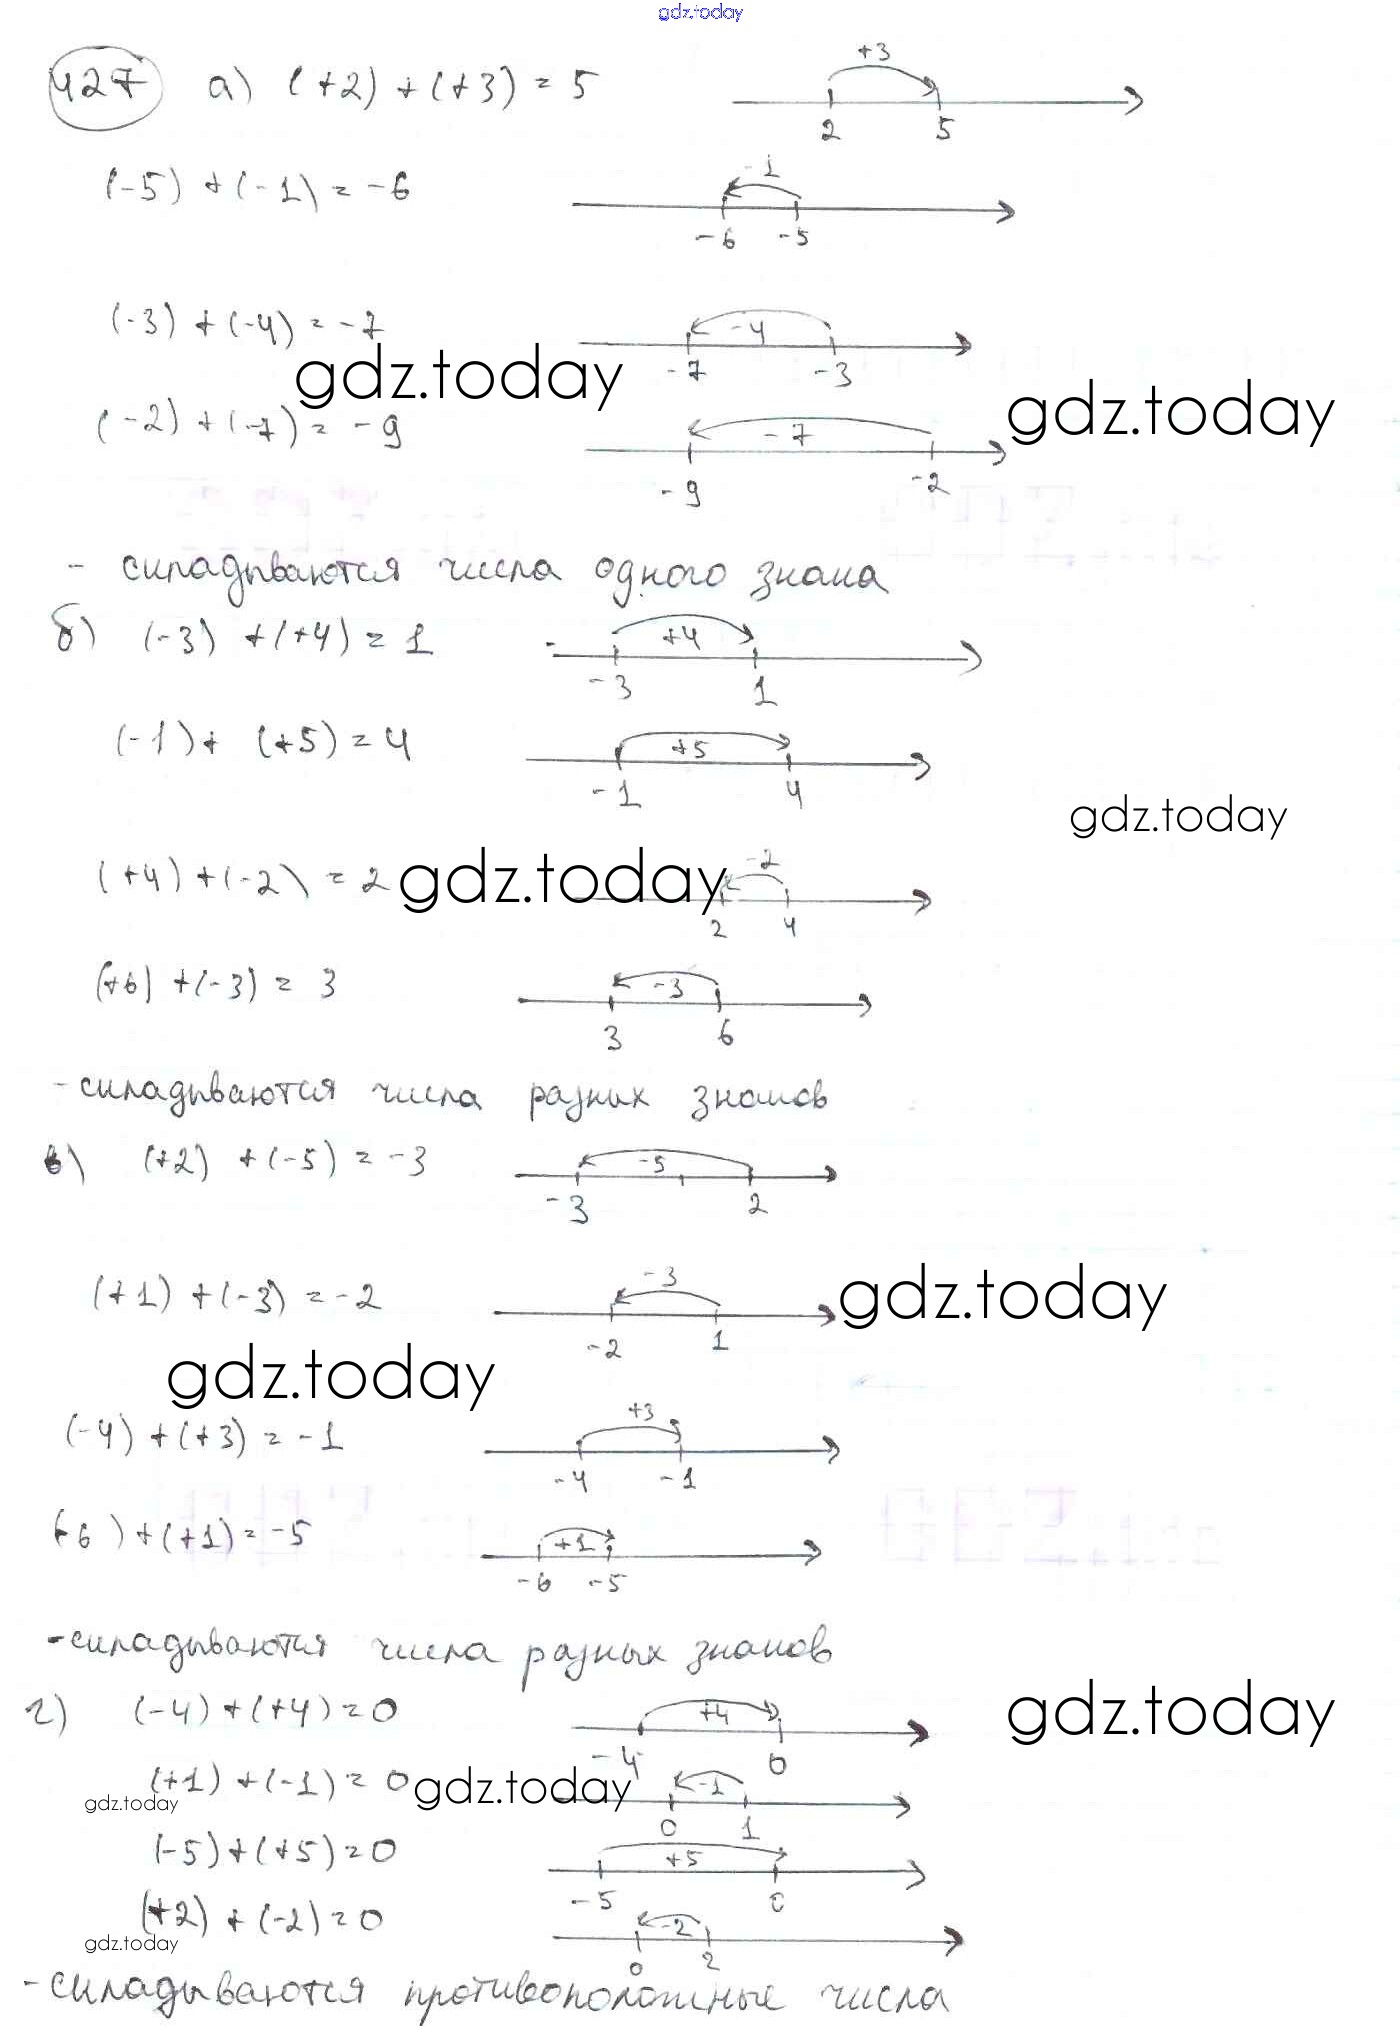 gdz.today
427 а) (+2) + (+3) = 5
+3
2 5
(-5) + (-1) = -6
-1
-6 -5
(-3) + (-4) = -7
-4
-7 -3
gdz.today
gdz.today
(-2) + (-7) = -9
-7
-9 -2
- складываются числа одного знака
б) (-3) + (+4) = 1
+4
-3 1
(-1) + (+5) = 4
+5
-1 4
gdz.today
(+4) + (-2) = 2
gdz.today
-2
2 4
(+6) + (-3) = 3
-3
3 6
- складываются числа разных знаков
в) (+2) + (-5) = -3
-5
-3 2
(+1) + (-3) = -2
-3
-2 1
gdz.today
gdz.today
(-4) + (+3) = -1
+3
-4 -1
(-6) + (+1) = -5
+1
-6 -5
- складываются числа разных знаков
г) (-4) + (+4) = 0
+4
-4 0
gdz.today
(+1) + (-1) = 0
gdz.today
-1
0 1
gdz.today
(-5) + (+5) = 0
+5
-5 0
(+2) + (-2) = 0
-2
0 2
gdz.today
- складываются противоположные числа